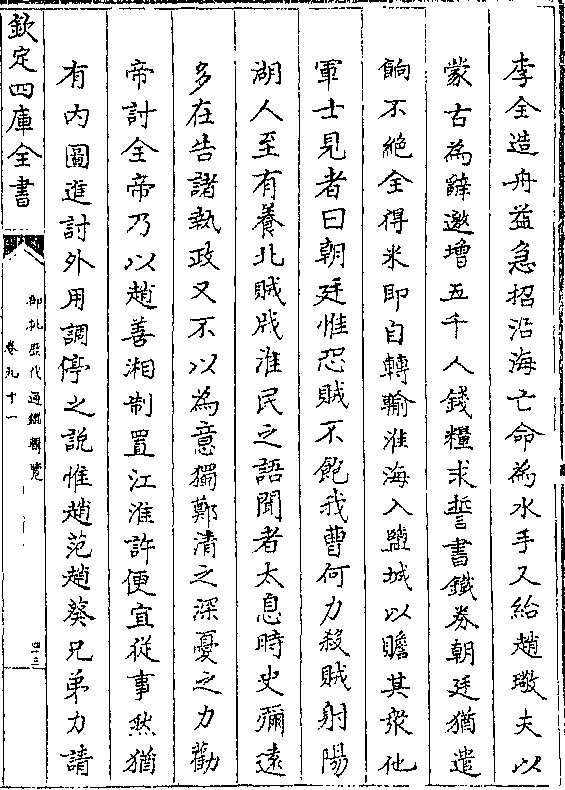 李全造舟益急招沿海亡命為水手又紿趙璥夫以
蒙古為辭邀增五千人錢糧求誓書鐵券朝廷猶遣
餉不絶全得米即自轉輸淮海入鹽城以贍其衆他
軍士見者曰朝廷惟恐賊不飽我曹何力殺賊射陽
湖人至有養北賊戕淮民之語聞者太息時史彌遠
多在告諸執政又不以為意獨鄭清之深憂之力勸
帝討全帝乃以趙善湘制置江淮許便宜從事然猶
有內圖進討外用調停之說惟趙范趙葵兄弟力請
欽定四庫全書
御批歴代通鑑輯覽
卷九十一
四十三